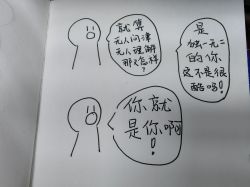 就算
无人问津
无人理解
那又怎样
?
是
独一无二
的你
这不是很
酷吗!
你就
是你啊
!